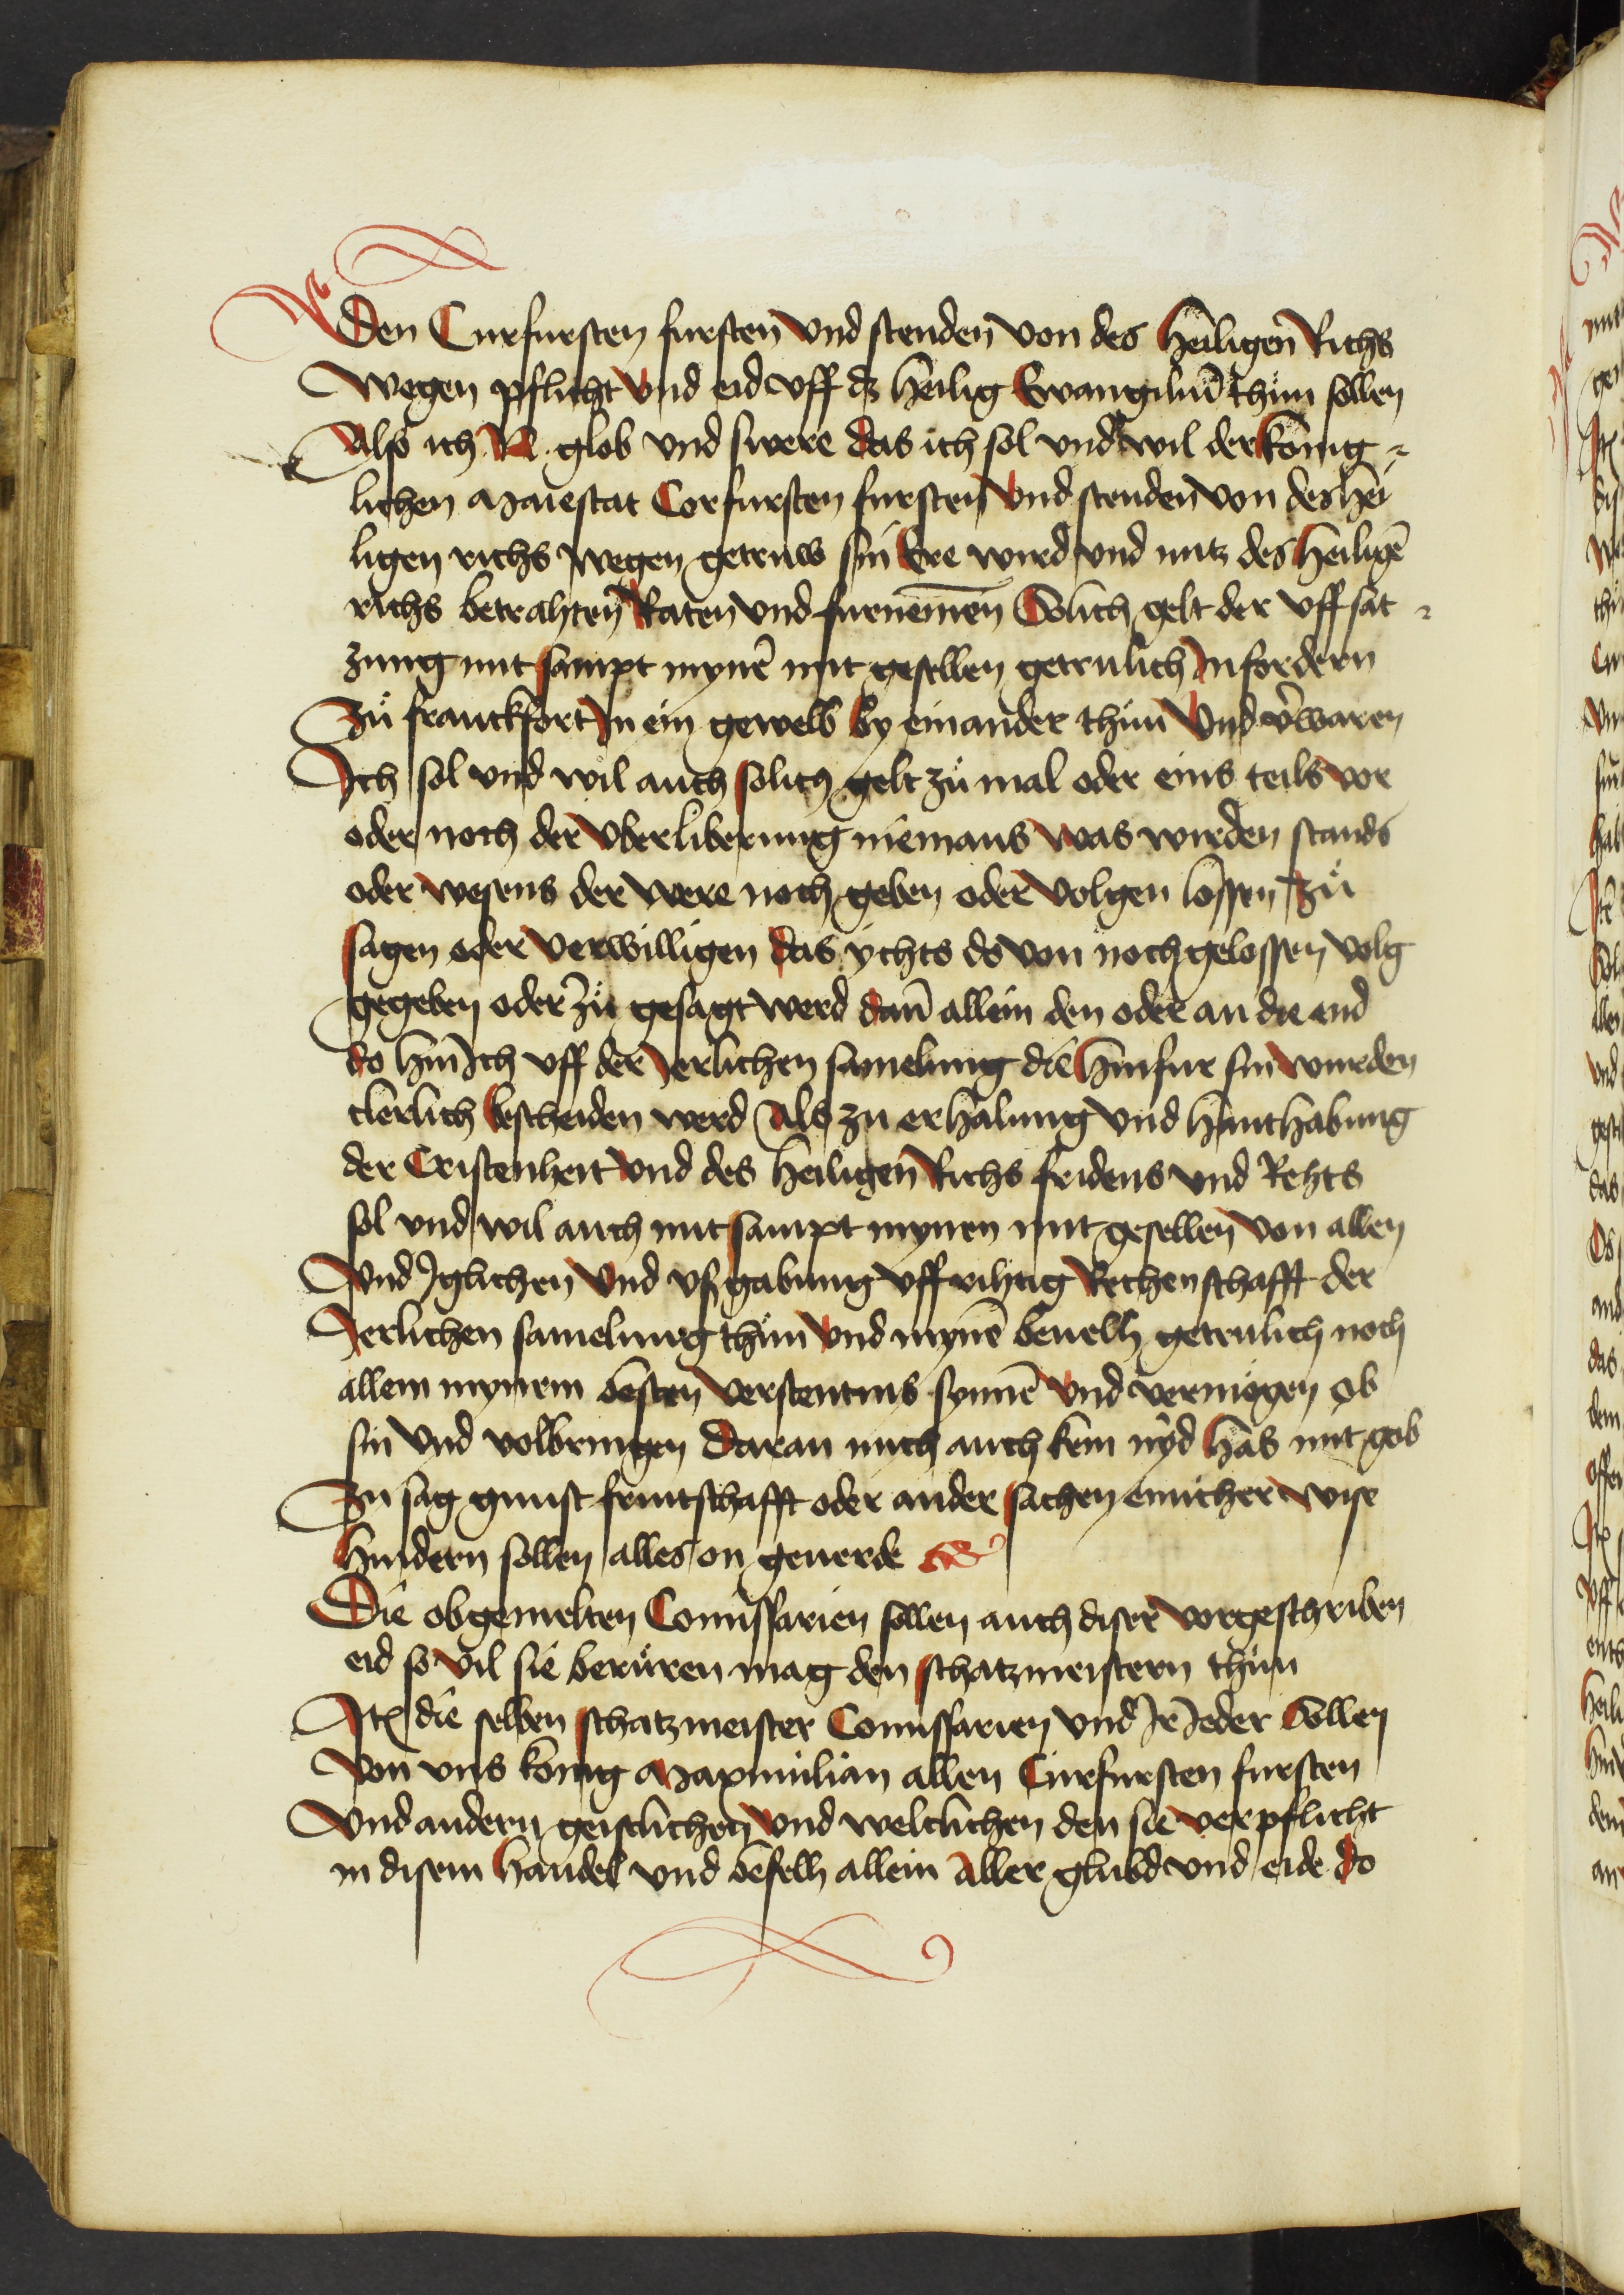 Den Curfursten fursten vnd stenden von des heiligen Richs
wegen pflicht vnd eid vff dz heilig Ewangiliū thůn sollen
Also ich N. glob vnd swere das ich sol vnd wil der konig-
lichen Maiestat Corfursten fursten vnd stenden von des hei
ligen richs wegen getruw sin Ere wird vnd nutz des heiligē
richs betrahten Raten vnd furnemen Solich gelt der vffsat-
zung mit sampt mynē mit gesellen getrulich Infordern
Zů franckfort In ein gewelb by einander thůn vnd v̄waren
Ich sol vnd wil auch solich gelt zů mal oder eins teils vor
oder noch der vberliberung niemans was wirden stands
oder wesens der were noch geben oder volgen lossen zů
sagen oder verwilligen das ychts do von noch gelossen volg
gegeben oder zů gesagt werd dañ allein den oder an die end
do hin Ich vff der Jerlichen samelung die hinfur sin wurden
clerlich bescheiden werd Als zu erhalung vnd hanthabung
der Cristenheit vnd des heiligen Richs fridens vnd Rehts
sol vnd wil auch mit sampt mynen mit gesellen von allen
vnd Jglichen vnd vßgabung vffrihtig Rechenschafft der
Jerlichen samelung thůn vnd mynē beuelh getrulich noch
allem mynem besten verstentnis synnē vnd vermögen ob
sin vnd volbringen Daran mich auch kein nyd has mit gob
Zu sag gunst fruntschafft oder ander sachen einicher wise
hindern sollen alles on geuerde
Die obgemelten Comissarien sollen auch diser vorgeschriben
eid so vil sie berůren mag den schatzmeistern thůn
Itē die selben schatzmeister Comissarien vnd Ir Jeder Sollen
von vns konig Maximilian allen Curfursten fursten
vnd andern geistlichen vnd weltlichen den sie verpflicht
in disem handel vnd befelh allein aller glubd vnd eide do